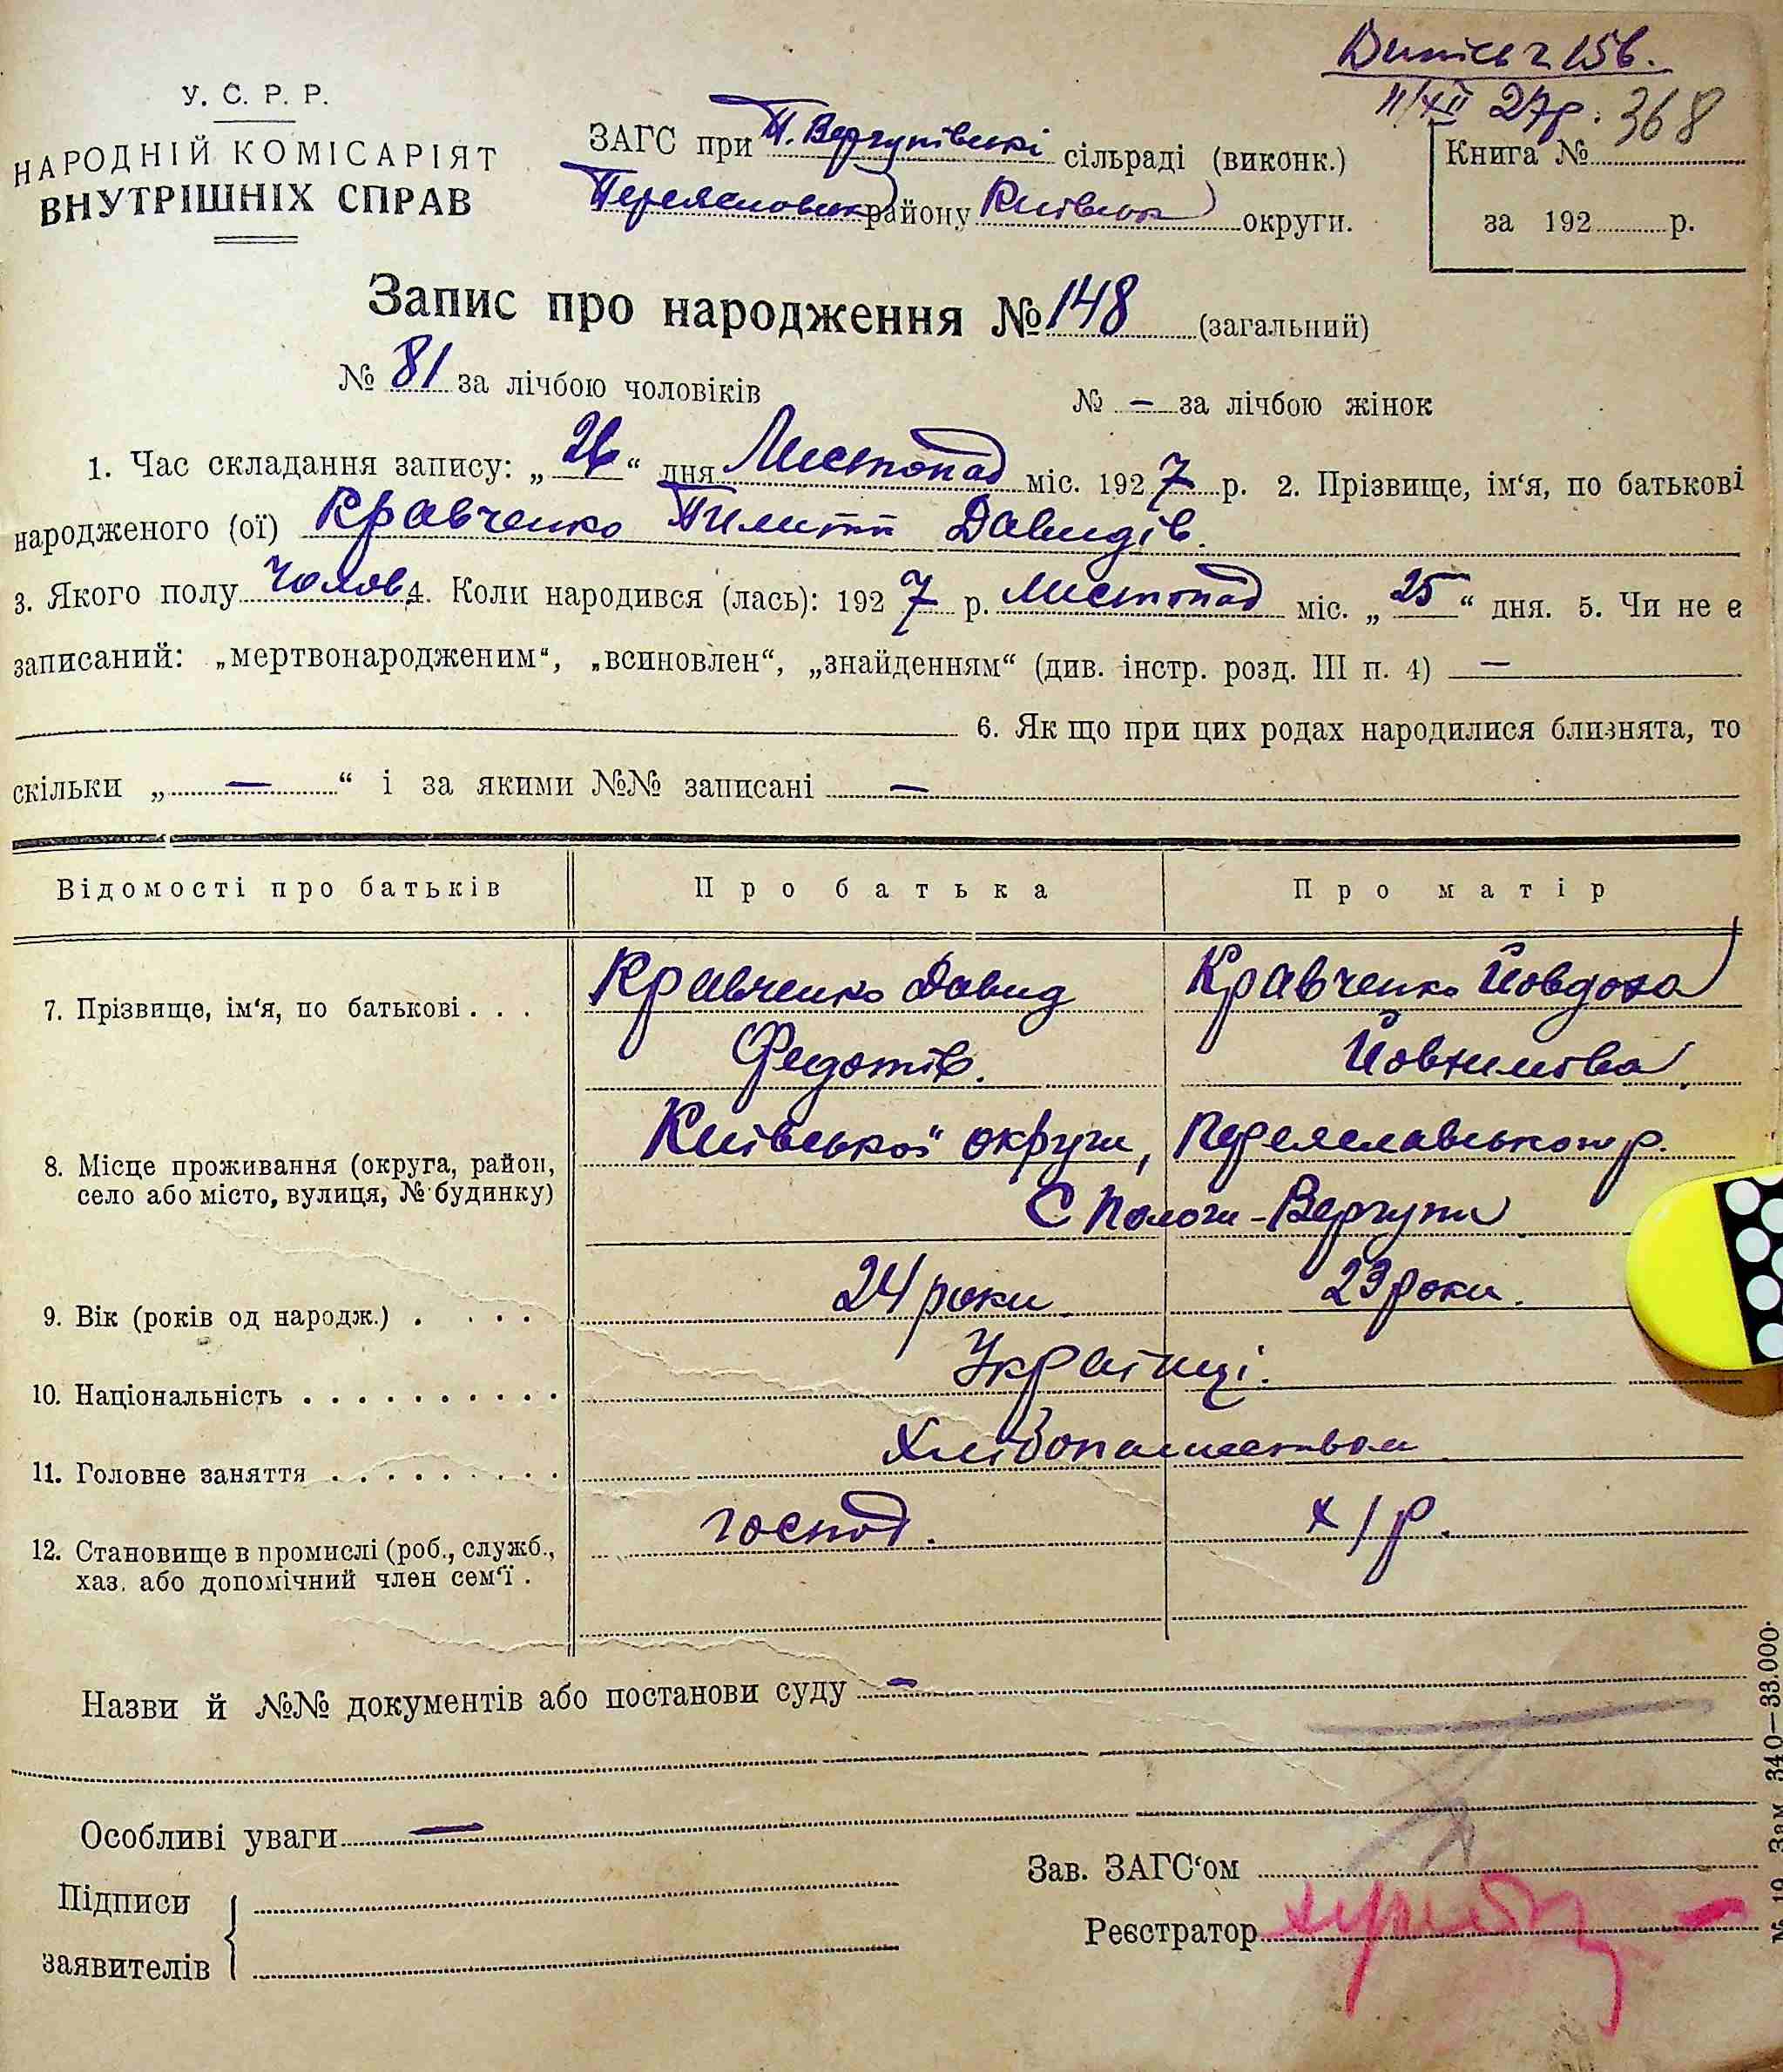 Випись 2 15б.
11/XII 27р. 368
У. С. Р. Р.
НАРОДНІЙ КОМІСАРІЯТ
ВНУТРІШНІХ СПРАВ
ЗАГС при П. Вергунівські сільраді (виконк.)
району округи.
Книга №
за 192 р.
Запис про народження № 148 (загальний)
№ 81 за лічбою чоловіків № — за лічбою жінок
1. Час складання запису: „26“ дня Листопад міс. 1927 р. 2. Прізвище, ім‘я, по батькові
народженого (ої) Кравченко Пилипп Давидів.
3. Якого полу чолов. 4. Коли народився (лась): 1927 р. Листопад міс. „25“ дня. 5. Чи не є
записаний: „мертвонародженим“, „всиновлен“, „знайденням“ (див. інстр. розд. III п. 4) —
6. Як що при цих родах народилися близнята, то
скільки „ — “ і за якими №№ записані —
Відомості про батьків Про батька Про матір
7. Прізвище, ім‘я, по батькові . . . Кравченко Давид Кравченко Йовдоха
Федотів. Йовхимівна
Київської округи, Переяславського р.
8. Місце проживання (округа, район,
село або місто, вулиця, № будинку) С Пологи-Вергуни
9. Вік (років од народж.) . . . . 24 роки 23 роки.
10. Національність . . . . . . . . . . Українці.
11. Головне заняття . . . . . . . . . Хлібопашеством
12. Становище в промислі (роб., служб., господ. х/р.
хаз. або допомічний член сем‘ї .
Назви й №№ документів або постанови суду —
Особливі уваги —
Підписи
заявителів
Зав. ЗАГС‘ом
Реєстратор
№ 19 Зам. 340—33.000.